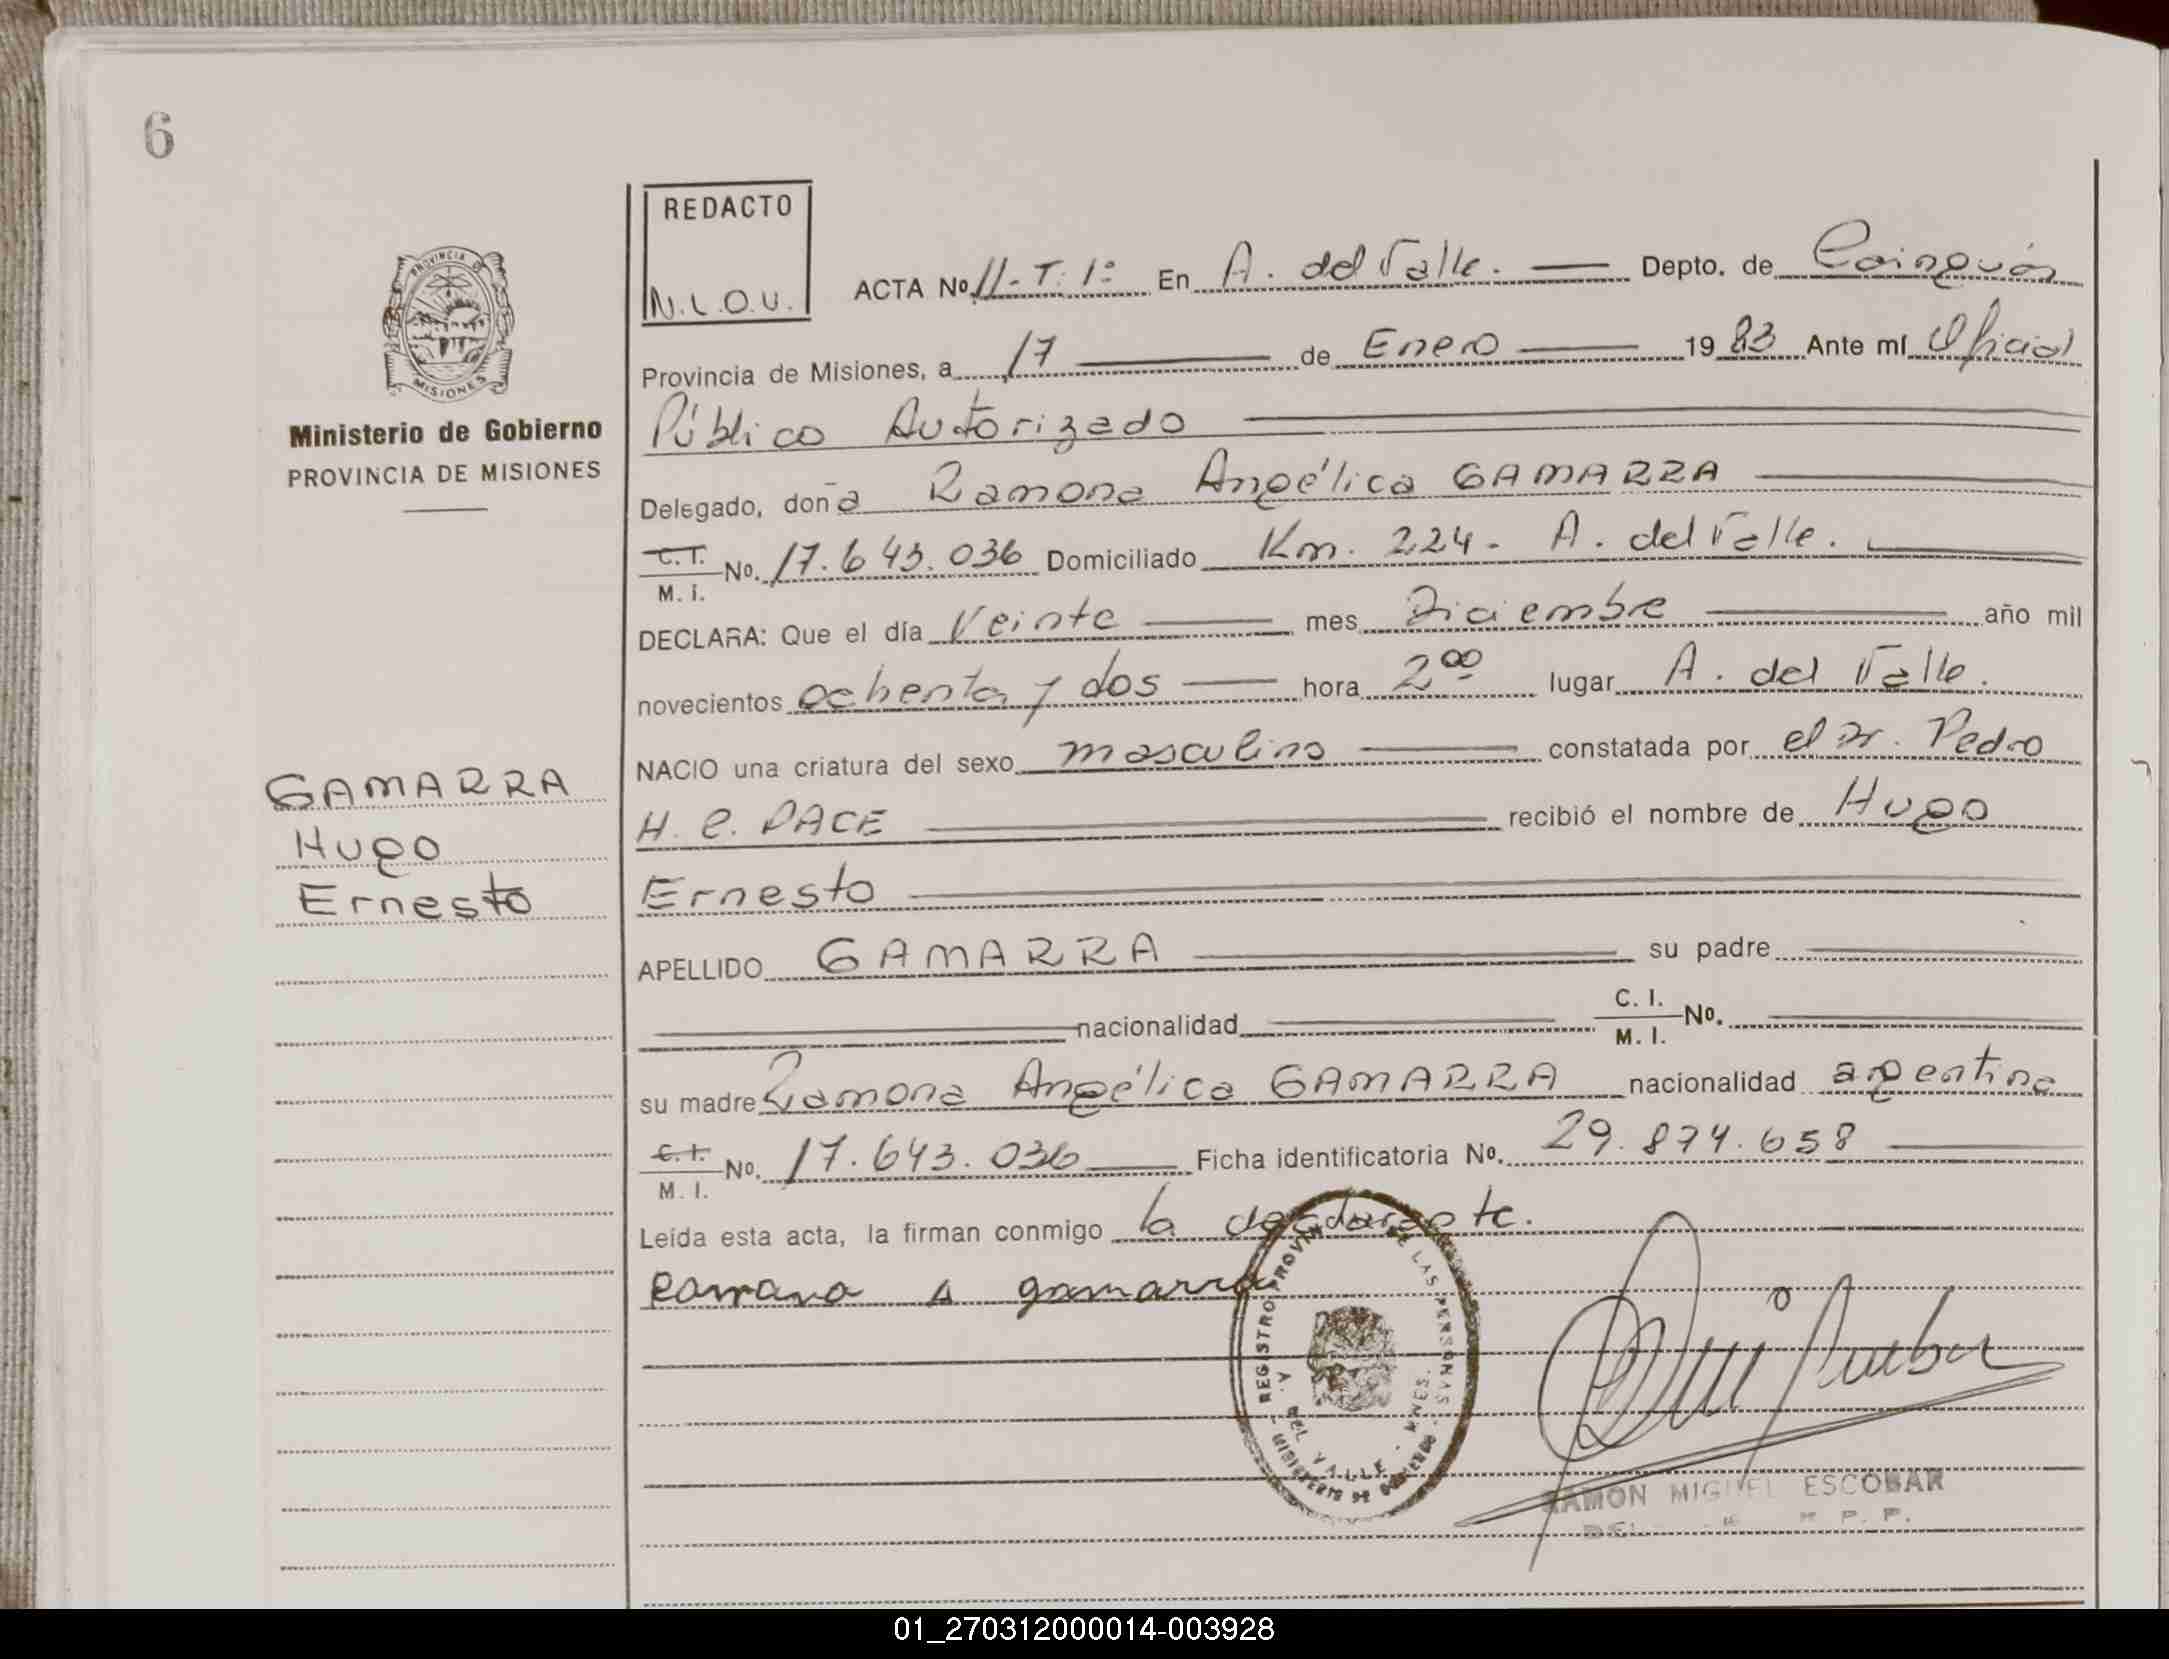 6
REDACTO
N.L.O.U.
ACTA No. 11-T. 1º En A. del Valle. Depto. de Cainguás
Provincia de Misiones, a 17 de Enero 1983 Ante mí Oficial
Público Autorizado
Delegado, doña Ramona Angélica GAMARRA
C.I. M. I. No. 17.643.036 Domiciliado Km. 224- A. del Valle.
DECLARA: Que el día Veinte mes Diciembre año mil
novecientos ochenta y dos hora 2⁰⁰ lugar A. del Valle.
NACIO una criatura del sexo masculino constatada por el Dr. Pedro
H. C. PACE recibió el nombre de Hugo
Ernesto
APELLIDO GAMARRA su padre
nacionalidad C. I. M. I. No.
su madre Ramona Angélica GAMARRA nacionalidad argentina
C.I. M. I. No. 17.643.036 Ficha identificatoria No. 29.874.658
Leída esta acta, la firman conmigo la declarante.
Ramona A gamarra
PROVINCIA DE
MISIONES
Ministerio de Gobierno
PROVINCIA DE MISIONES
GAMARRA
Hugo
Ernesto
REGISTRO PROVIN DE LAS PERSONAS
MINISTERIO DE GOBIERNO
A. DEL VALLE - MNES.
RAMON MIGUEL ESCOBAR
01_270312000014-003928